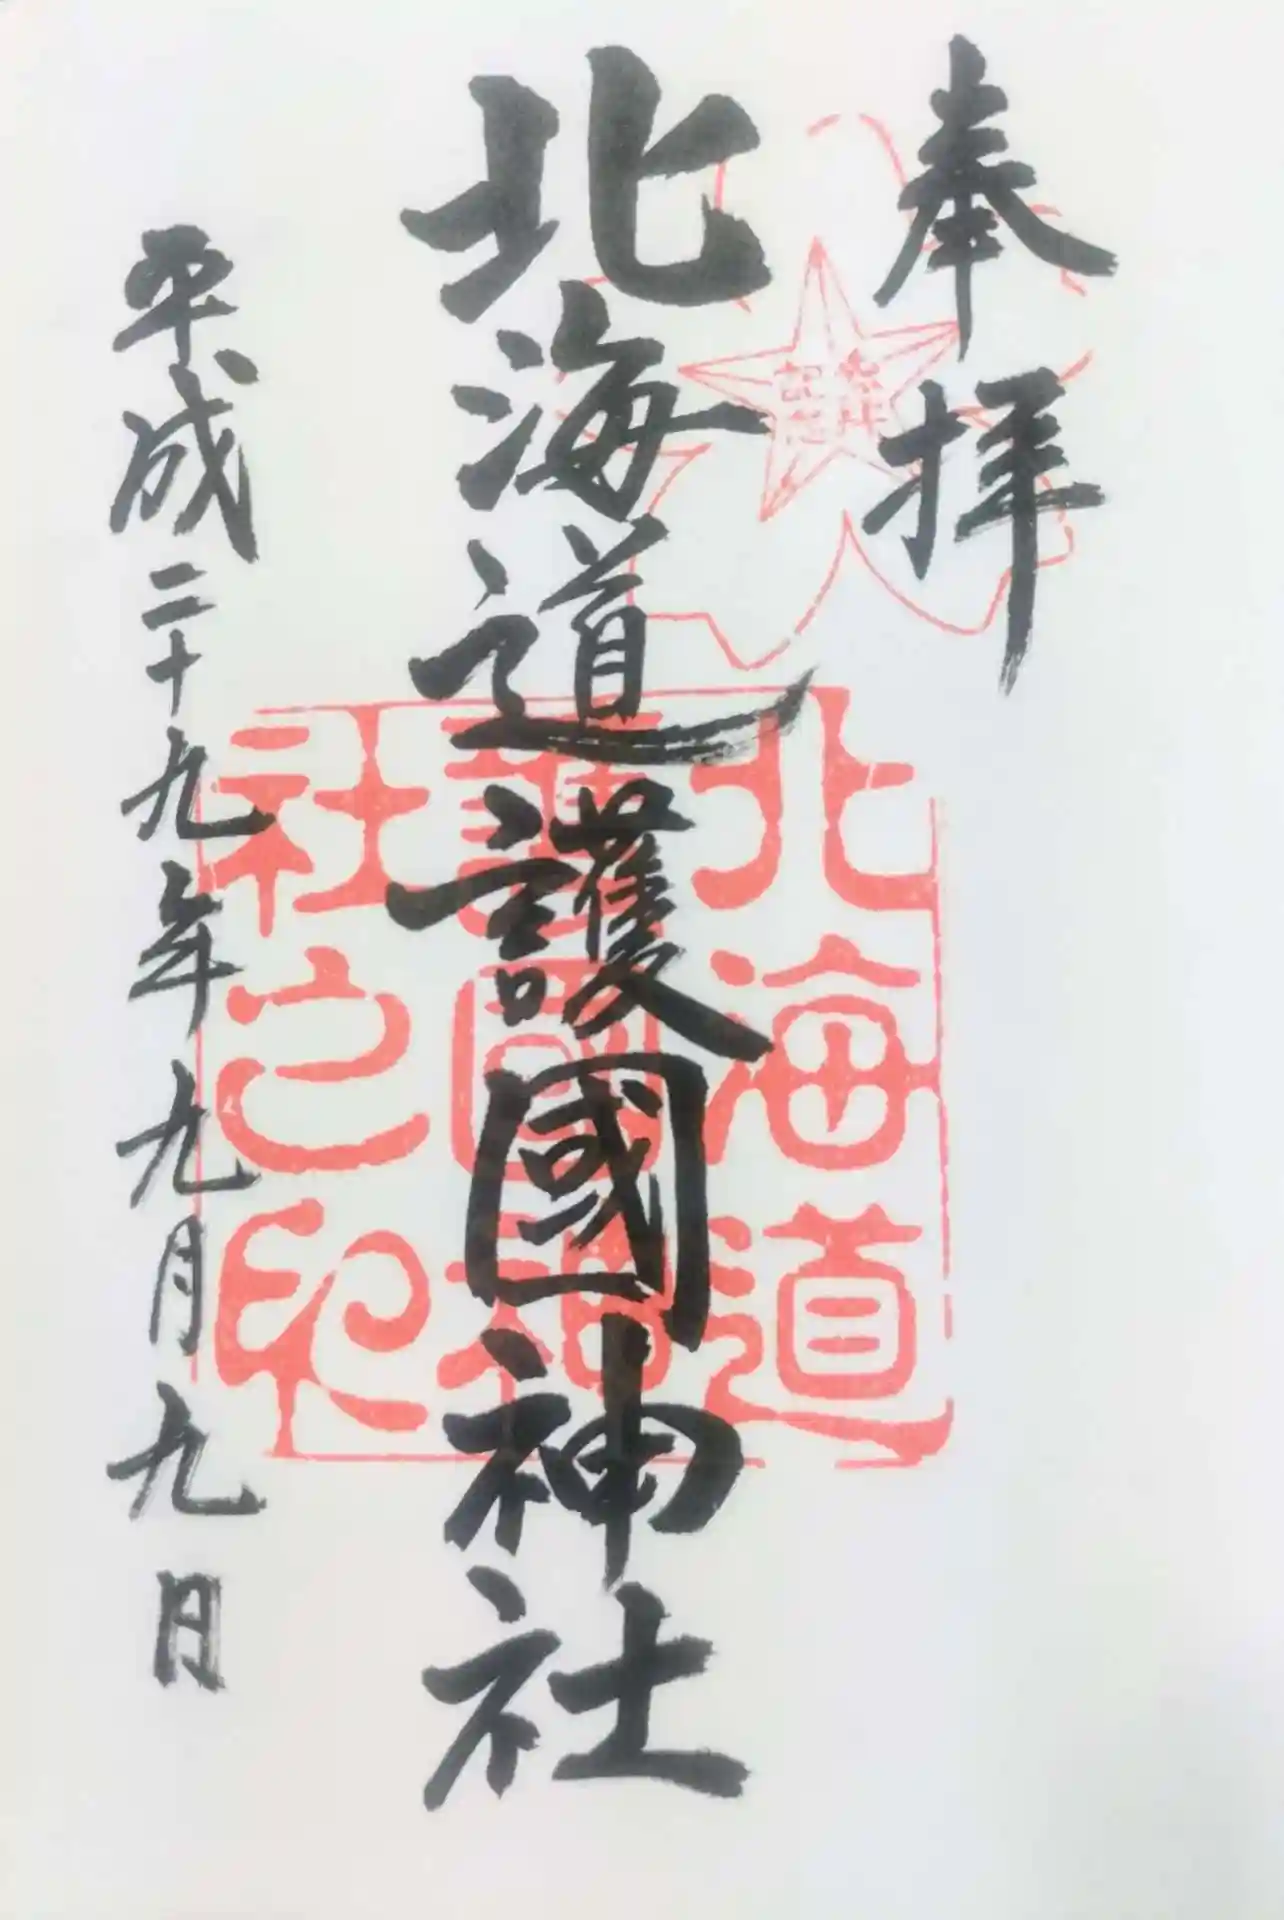 奉拝
参拝
記念
北海道護國神社
北海道
護國神
社之印
平成二十九年九月九日